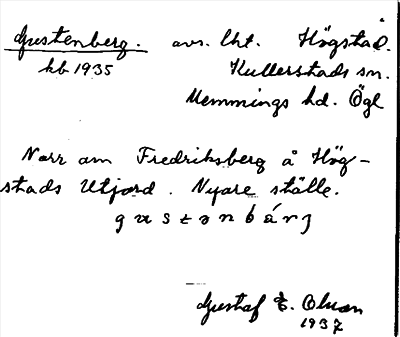 Gustenberg. avs. lht. Högstad.
kb 1935 Kullerstads sn.
Memmings hd. Ögl
Norr om Fredriksberg å Hög-
stads Utjord. Nyare ställe.
Gustaf E.
1937